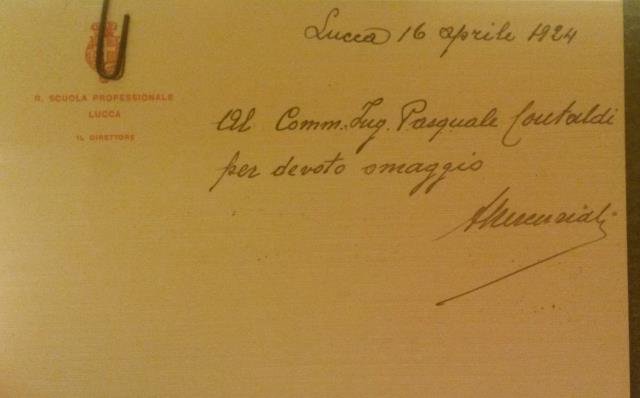 Lucca 16 aprile 1924
R. SCUOLA PROFESSIONALE
LUCCA
IL DIRETTORE
Al Comm. Ing. Pasquale Contaldi
per devoto omaggio